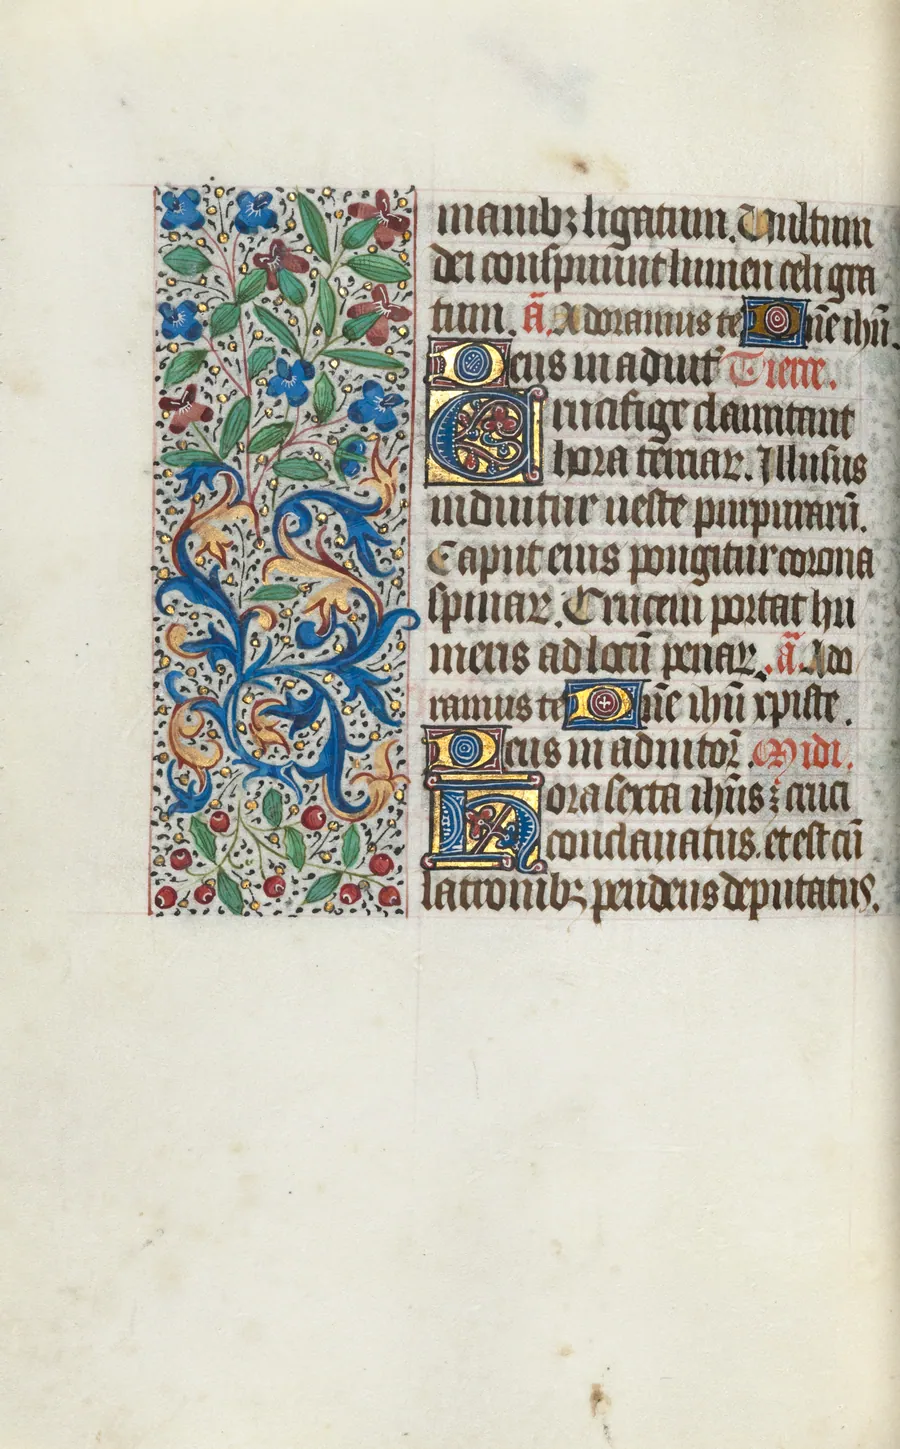 manibꝫ ligatum. Vultum
dei conspuunt lumen celi gra
tum. ã. Adoramus te Dñe ihũ.
Deus in adiuit᷑ Tierce.
Crucifige clamitant
hora terciaꝝ. Illusus
induitur ueste purpuraꝝũ.
Caput eius pongitur corona
spinaꝝ. Crucem portat hu
meris ad locũ penaꝝ. ã. Ado
ramus te Dñe ihũ xpiste.
Deus in adiutoꝝ. Midi.
Hora sexta ihũs ⁊ cruci
conclauatus. et est cũ
latronibꝫ pendens deputatus.